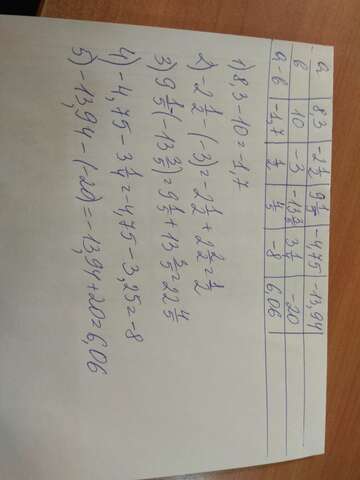 a 8,3 -2 1/2 9 1/5 -4,75 -13,94
b 10 -3 -13 3/5 3 1/4 -20
a-b -1,7 1/2 4/5 -8 6,06
1) 8,3-10=-1,7
2) -2 1/2 -(-3)=-2 1/2 +2 2/2 = 1/2
3) 9 1/5 -(-13 3/5)=9 1/5 +13 3/5 =22 4/5
4) -4,75-3 1/4 =-4,75-3,25=-8
5) -13,94-(-20)=-13,94+20=6,06